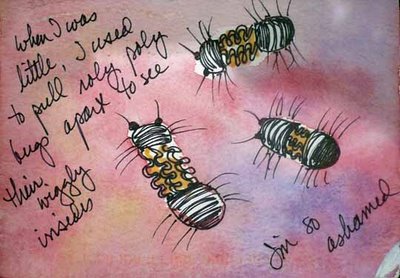 when I was
little, I used
to pull roly poly
bugs apart to see
their wiggly
insides
I'm so
ashamed